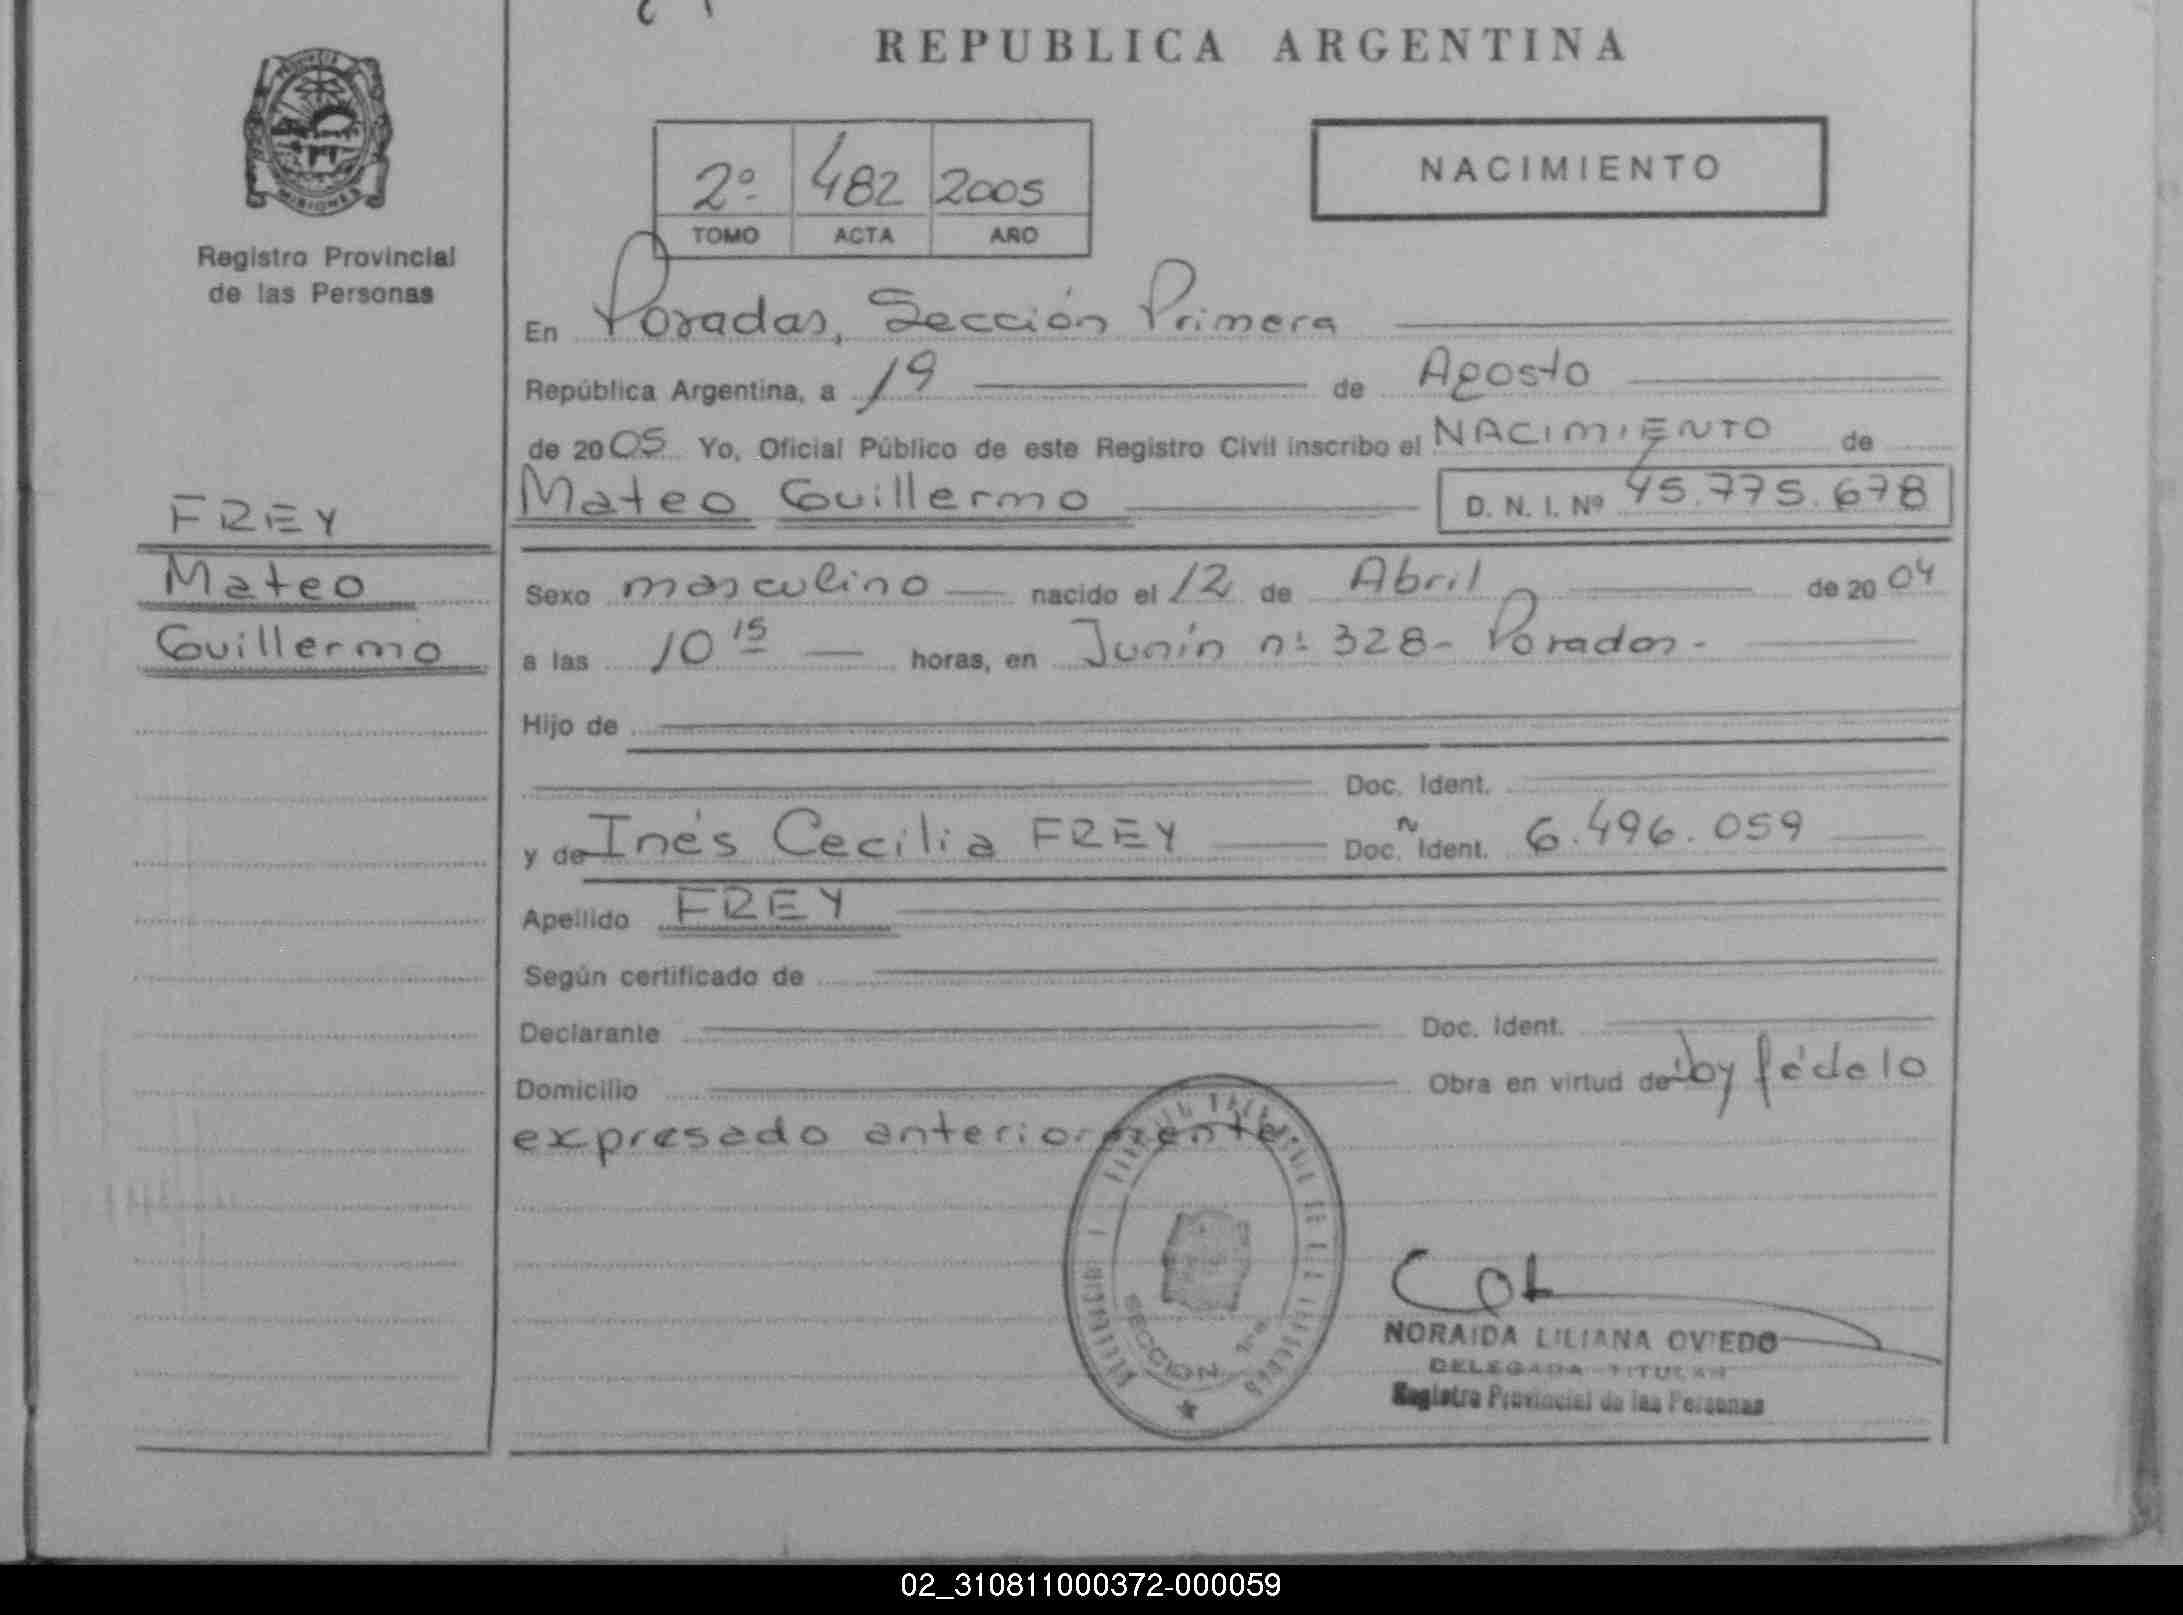 REPUBLICA ARGENTINA
PROVINCIA DE
MISIONES
Registro Provincial
de las Personas
2º 482 2005
TOMO ACTA AÑO
NACIMIENTO
En Posadas, Sección Primera
República Argentina, a 19 de Agosto
de 2005 Yo, Oficial Público de este Registro Civil inscribo el NACIMIENTO de
Mateo Guillermo D. N. I. Nº 45.775.678
FREY
Mateo
Guillermo
Sexo masculino nacido el 12 de Abril de 2004
a las 10 15 horas, en Junín nº 328- Posadas-
Hijo de
Doc. Ident.
y de Inés Cecilia FREY Doc. Ident. 6.496.059
Apellido FREY
Según certificado de
Declarante Doc. Ident.
Domicilio Obra en virtud de doy fé de lo
expresado anteriormente
SECCION
NORAIDA LILIANA OVIEDO
DELEGADA TITULAR
Registro Provincial de las Personas
02_310811000372-000059